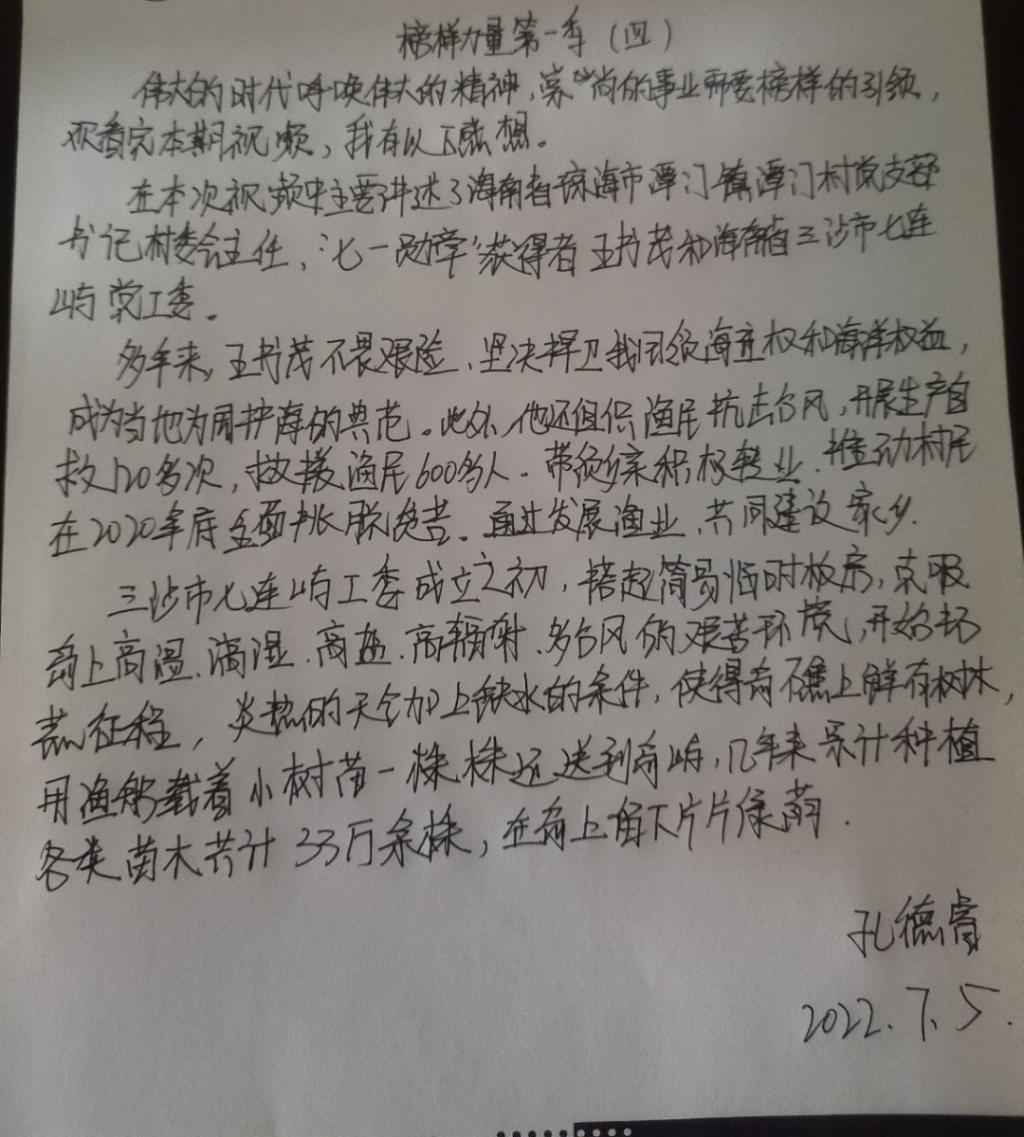 榜样力量第一季（四）
伟大的时代呼唤伟大的精神，崇尚的事业需要榜样的引领，
观看完本期视频，我有以下感想。
在本次视频中主要讲述了海南省琼海市潭门镇潭门村党支部
书记村委会主任，“七一勋章”获得者王书茂和海南省三沙市七连
屿党工委。
多年来，王书茂不畏艰险、坚决捍卫我国领海主权和海洋权益，
成为当地为国护海的典范。此外，他还组织渔民抗击台风，开展生产自
救120多次，救援渔民600多人。带领乡亲积极转业、推动村民
在2020年底全面脱贫。通过发展渔业，共同建设家乡.
三沙市七连屿工委成立之初，搭起简易临时板房，克服
岛上高温、高湿、高盐、高辐射、多台风的艰苦环境，开始拓
荒征程，炎热的天气加上缺水的条件，使得岛礁上鲜有树木，
用渔船载着小树苗一株株运送到岛屿，几年来累计种植
各类苗木共计33万余株，在岛上留下片片绿荫.
孔德睿
2022.7.5.